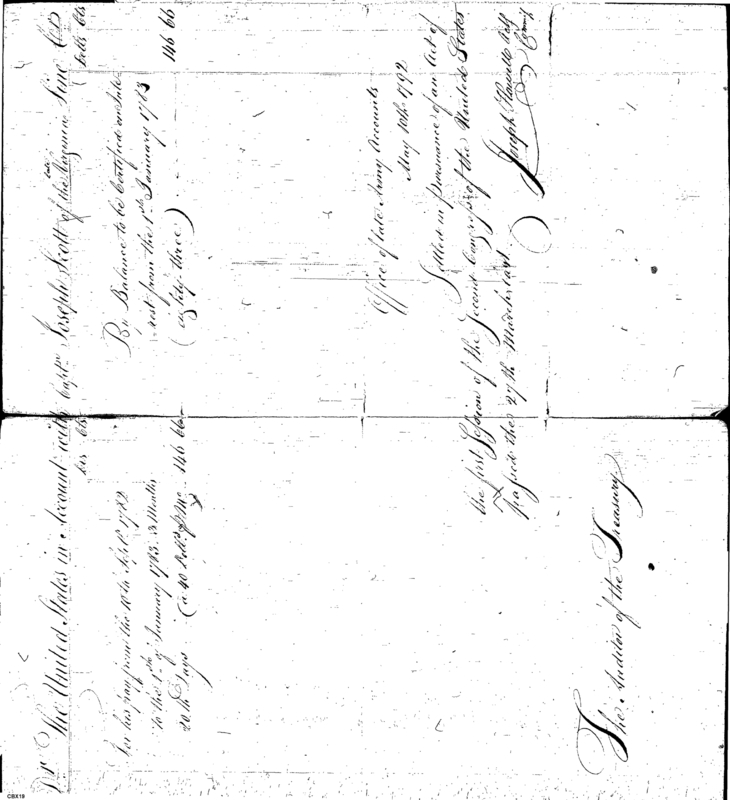 Dr The United States in Account with Captn Joseph Scott of the Virginia Line Cr
Dolls Cts
Dolls Cts
For his pay from the 10th Septr 1782
to the 1st of January 1783. 3 Months
20th Days @ 40 Dolls Mo 146 66
By Balance to be Certified on Inte-
rest from the 1st January 1783
(eighty three) 146 66
Office of late Army Accounts
May 10th 1792
Settled in pursuance of an Act of
the first Session of the Second Congress of the United States
passed the 27th March last
Joseph Howell
The Auditor of the Treasury
CBX18